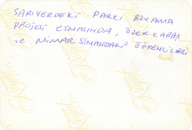 SARIYERDEKİ PARKI BOYAMA
PROJESİ ESNASINDA, ÖZER KABAŞ
VE MİMAR SİNANDAKİ ÖĞRENCİLERİ